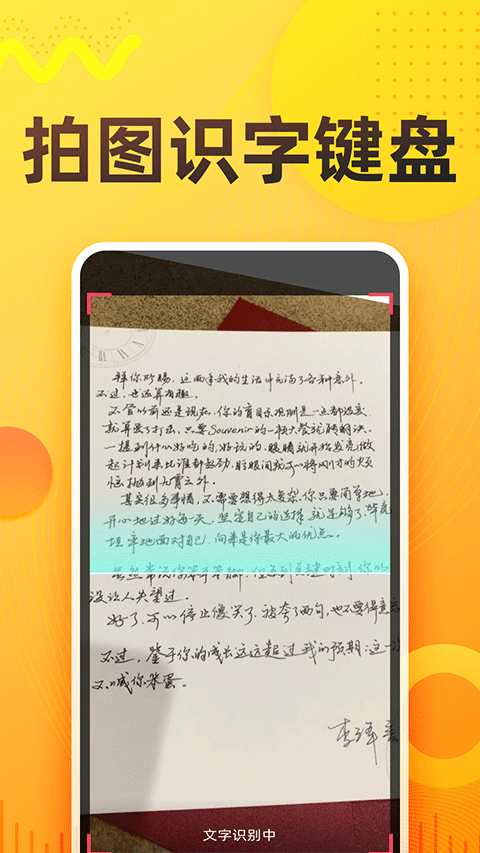 拍图识字键盘
拜你所赐,这两年我的生活中充满了各种意外。
不过,也还算有趣。
不管以前还是现在,你的盲目乐观一点都没变
就算受了打击,只要Souvenir的一顿大餐就能解决。
一提到什么好吃的,好玩的,眼睛就开始发亮,做
起计划来比谁都起劲,眨眼间就可以将刚才的烦
恼抛到九霄云外。
其实很多事情,不需要想得太复杂,你只要简单地、
开心地过好每一天,坚定自己的选择,就足够了。
坦率地面对自己,向来是你最大的优点。
虽然常说你笨手笨脚,但
没让人失望过。
好了,可以停止傻笑了。被夸了两句,也不要得意忘
不过,鉴于你的成长远远超过我的预期,这一次
不喊你笨蛋。
李泽言
文字识别中